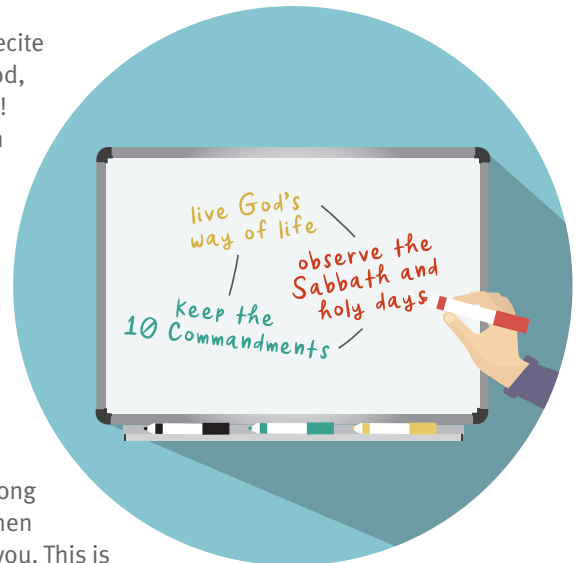 ecite
od,
!
live God's
way of life
observe the
Sabbath and
holy days
Keep the
10 Commandments
ong
you. This is